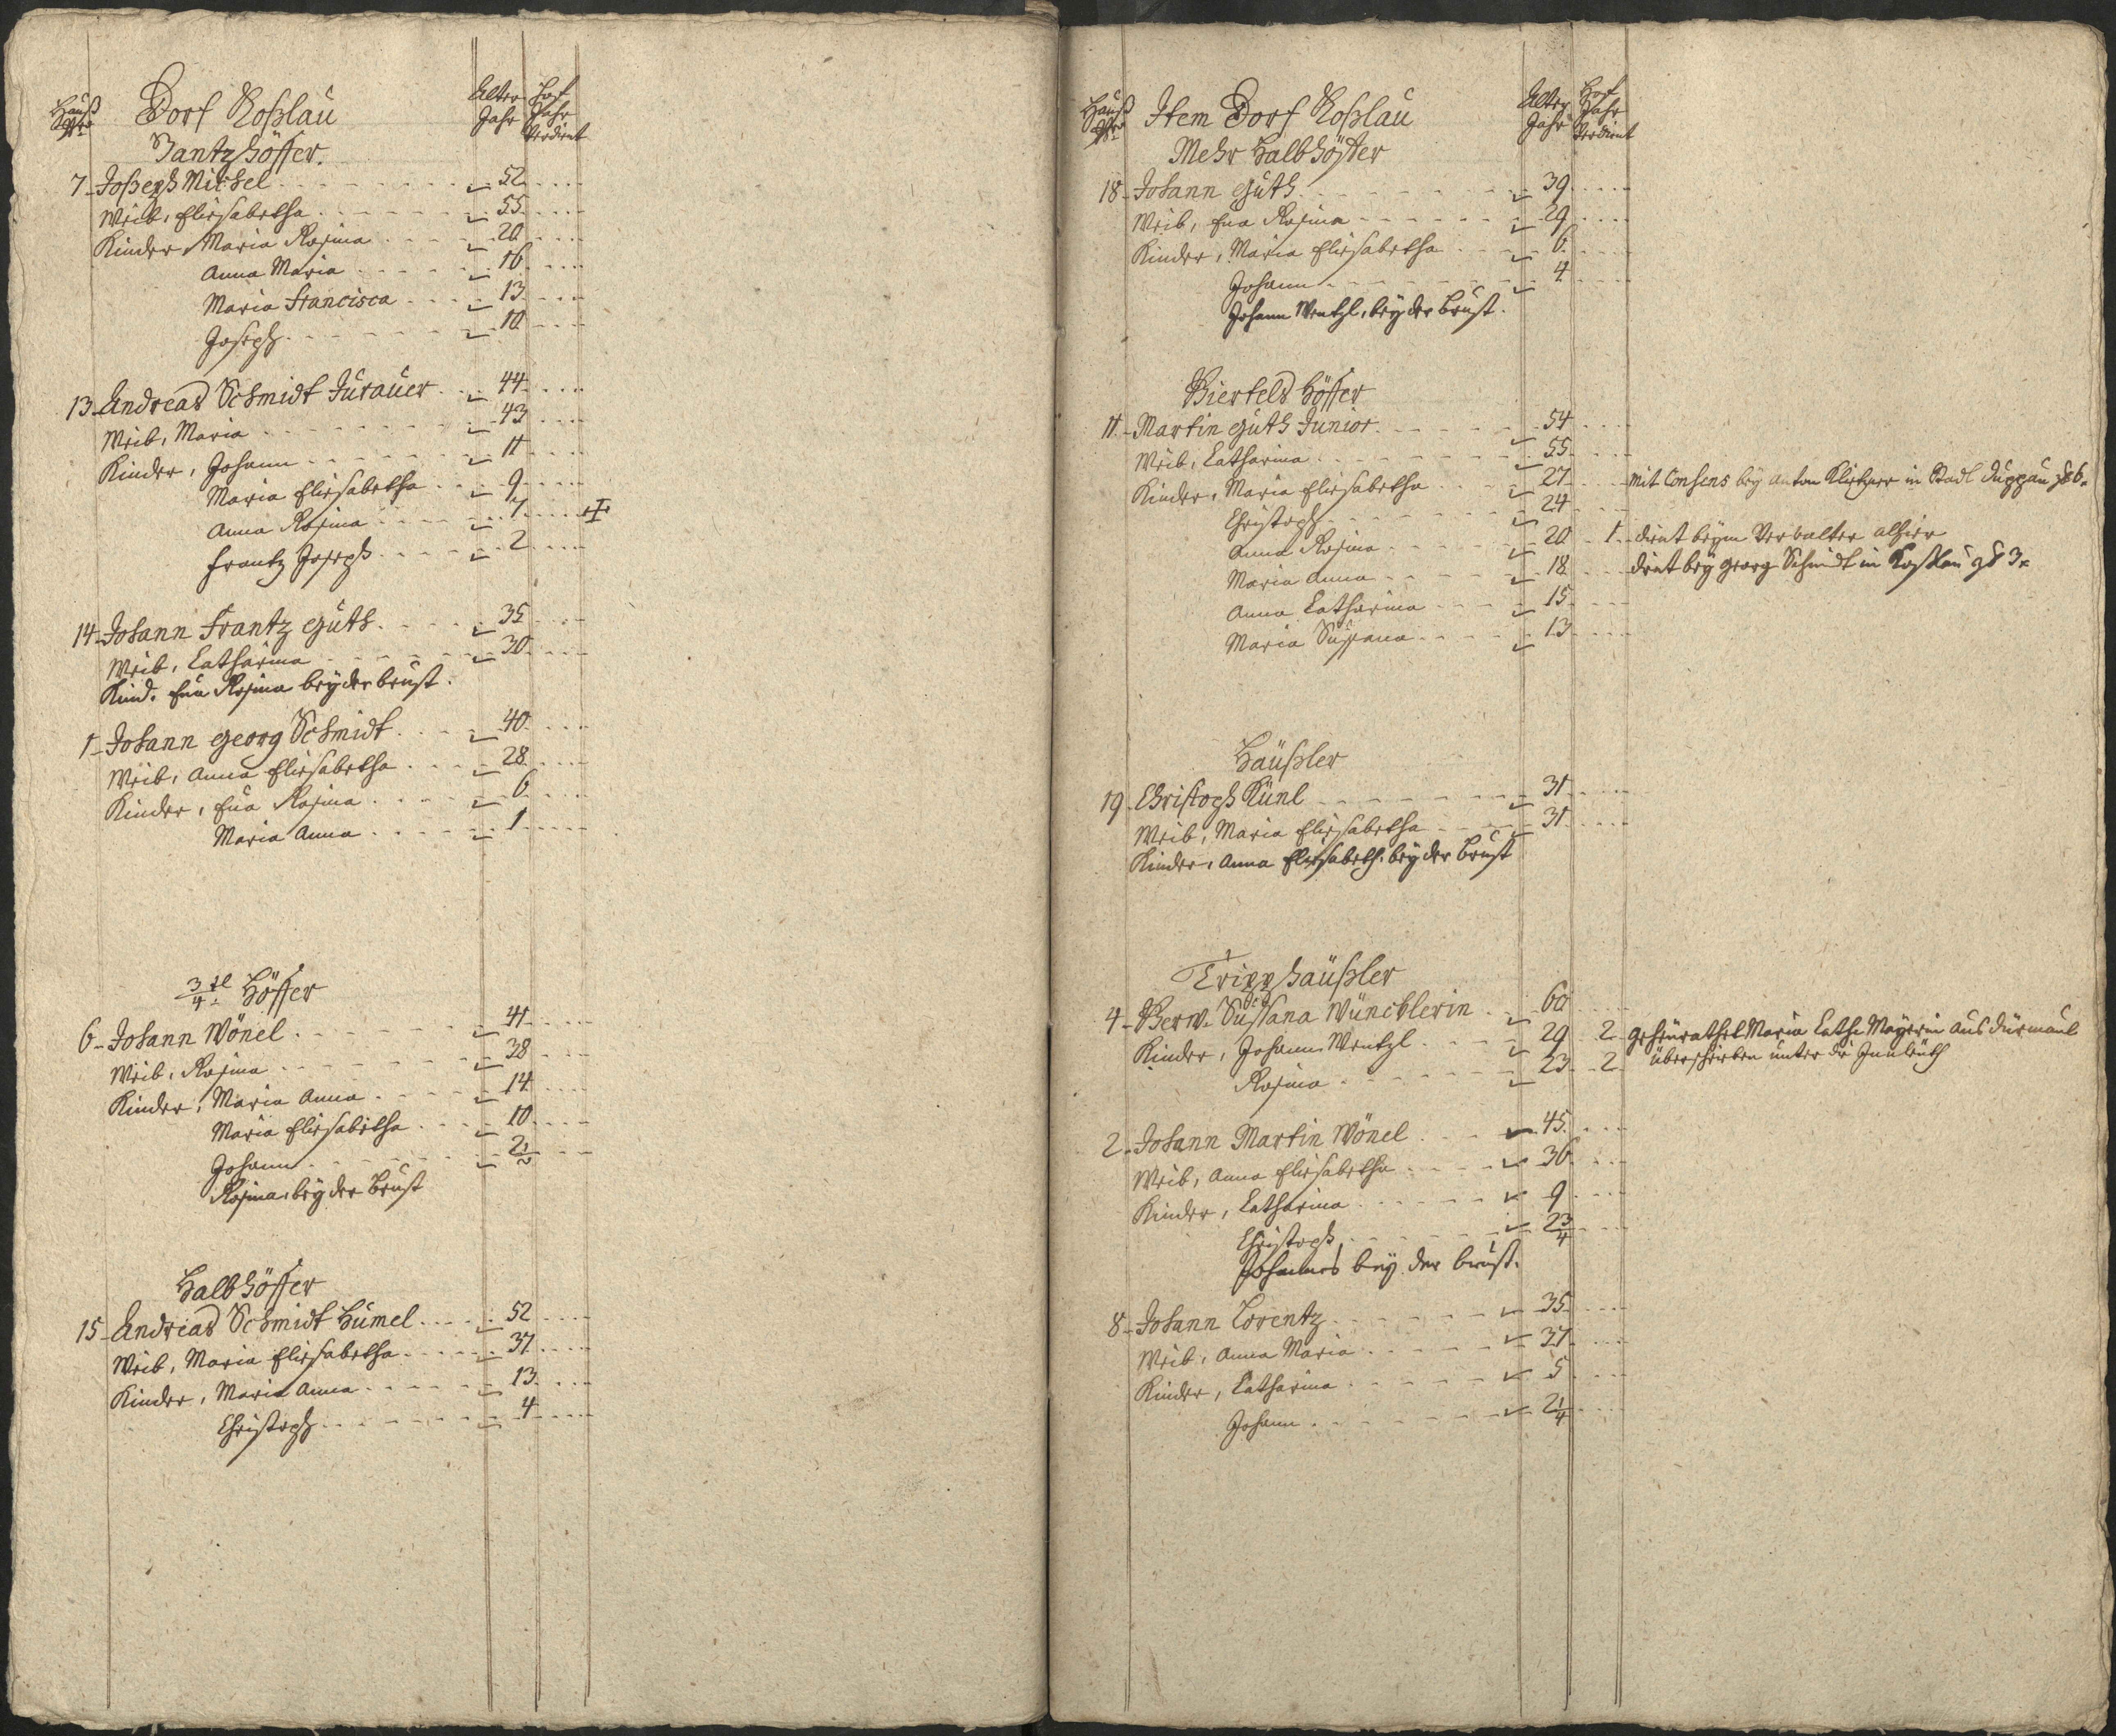 Hauß Nro Dorf Koßlau Alter Jahr Hof Jahr Verdient
Gantzhöffer.
7 Joseph Michel 52
Weib, Eliesabetha 55
Kinder, Maria Rosina 20
Anna Maria 16
Maria Francisca 13
Joseph 10
13 Andreas Schmidt Jurauer 44
Weib, Maria 43
Kinder, Johann 11
Maria Eliesabetha 9
Anna Rosina 7 +
Frantz Joseph 2
14 Johann Frantz Guth 35
Weib, Catharina 30
Kind. Eua Rosina bey der brust.
1 Johann Georg Schmidt 40
Weib, Anna Eliesabetha 28
Kinder, Eua Rosina 6
Maria Anna 1
3/4tl Höffer
6 Johann Wönel 41
Weib, Rosina 38
Kinder, Maria Anna 14
Maria Eliesabetha 10
Johann 2 1/2
Rosina, bey der Brust
Halbhöffer
15 Andreas Schmidt Humel 52
Weib, Maria Eliesabetha 37
Kinder, Maria Anna 13
Christoph 4
Hauß Nro Item Dorf Koßlau Alter Jahr Hof Jahr Verdient
Mehr Halbhöffer
18 Johann Guth 39
Weib, Eua Rosina 29
Kinder, Maria Eliesabetha 6
Johann 4
Johann Wentzl, bey der Brust.
Viertels Höffer
11 Martin Guth Junior 54
Weib, Catharina 55
Kinder, Maria Eliesabetha 27 mit Consens bey Anton in Stadl Duppau
Christoph 24
Anna Rosina 20 1 dient beym Verwalter alhier
Maria Anna 18 dient bey Georg Schmidt in Koßlau 3
Anna Catharina 15
Maria Susana 13
Häußler
19 Christoph Künl 31
Weib, Maria Eliesabetha 31
Kinder, Anna Eliesabeth. bey der Brust
Tripphäußler
4 Verw. Susana Wüncklerin 60
Kinder, Johann Wentzl 29 2 geheurathet Maria Cath. Mayerin aus Dürmaul
Rosina 23 2 überschrieben unter die Innleuth
2 Johann Martin Wönel 45
Weib, Anna Eliesabetha 36
Kinder, Catharina 9
Christoph 2 3/4
Johannes bey der brust.
8 Johann Lorentz 35
Weib, Anna Maria 37
Kinder, Catharina 5
Johann 2 1/4